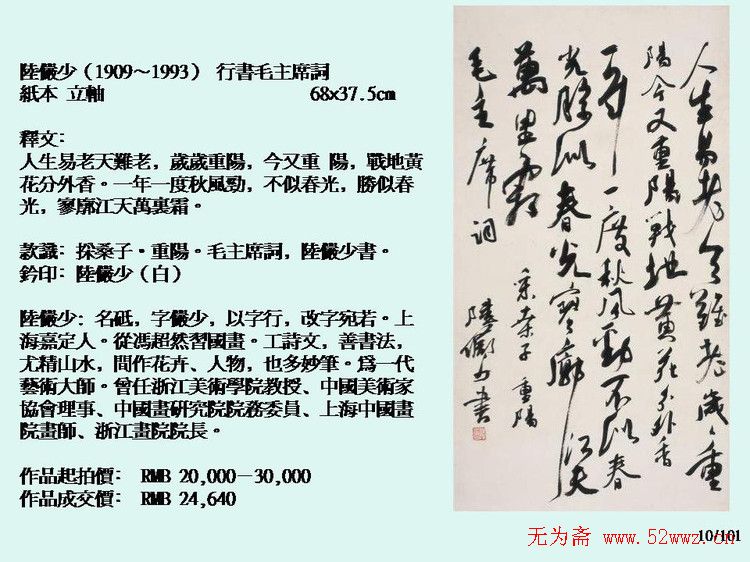 陸儼少（1909～1993） 行書毛主席詞
紙本 立軸 68x37.5cm
釋文:
人生易老天難老，歲歲重陽，今又重 陽，戰地黃
花分外香。一年一度秋風勁，不似春光，勝似春
光，寥廓江天萬裏霜。
款識: 採桑子·重陽。毛主席詞，陸儼少書。
鈐印: 陸儼少（白）
陸儼少: 名砥，字儼少，以字行，改字宛若。上
海嘉定人。從馮超然習國畫。工詩文，善書法，
尤精山水，間作花卉、人物，也多妙筆。爲一代
藝術大師。曾任浙江美術學院教授、中國美術家
協會理事、中國畫研究院院務委員、上海中國畫
院畫師、浙江畫院院長。
作品起拍價: RMB 20,000－30,000
作品成交價: RMB 24,640
人生易老天難老歲歲重
陽今又重陽戰地黃花分外香
一年一度秋風勁不似春
光勝似春光寥廓江天
萬里霜
毛主席詞
采桑子 重陽
陸儼少書
无为斋 www.52wwz.cn
10/101